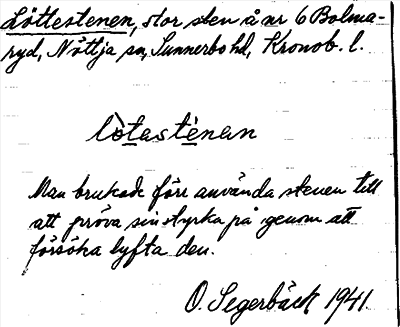 Löttestenen, stor sten å nr 6 Bolma-
ryd, Nöttja sn, Sunnerbo hd, Kronob. l.
lò̱tastè̱nan
Man brukade förr använda stenen till
att pröva sin styrka på genom att
försöka lyfta den.
O. Segerbäck 1941.